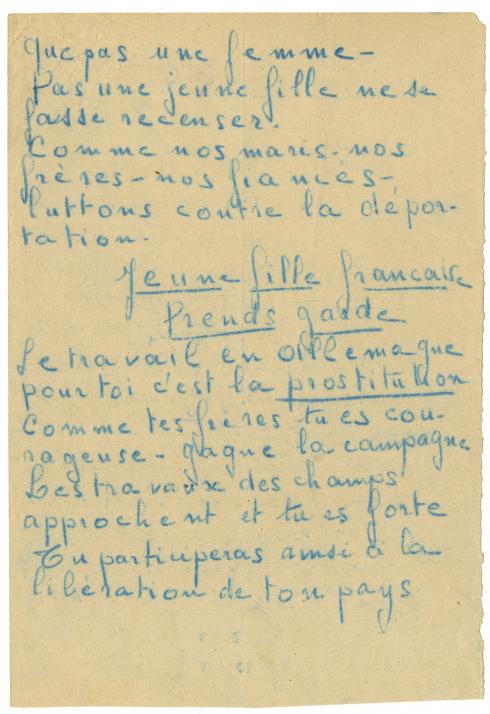 Que pas une femme –
Pas une jeune fille ne se
fasse recenser.
Comme nos maris - nos
frères - nos fiancés -
luttons contre la dépor-
tation.
Jeune fille francaise
Prends garde
Le travail en Allemagne
pour toi c'est la prostitution
Comme tes frères tu es cou-
rageuse - gagne la campagne
Les travaux des champs
approchent et tu es forte
Tu participeras ainsi à la
libération de ton pays